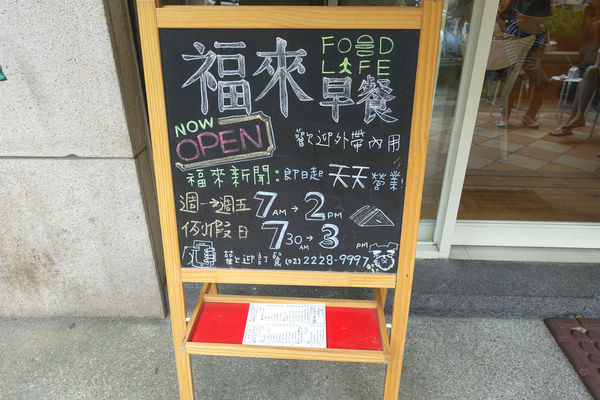 福來
FOOD
LIFE
早餐
NOW
OPEN
歡迎外帶內用
福來新聞:即日起天天營業!
週一→週五 7AM→2PM
例假日 730AM→3PM
歡迎訂餐 (02)2228-9997